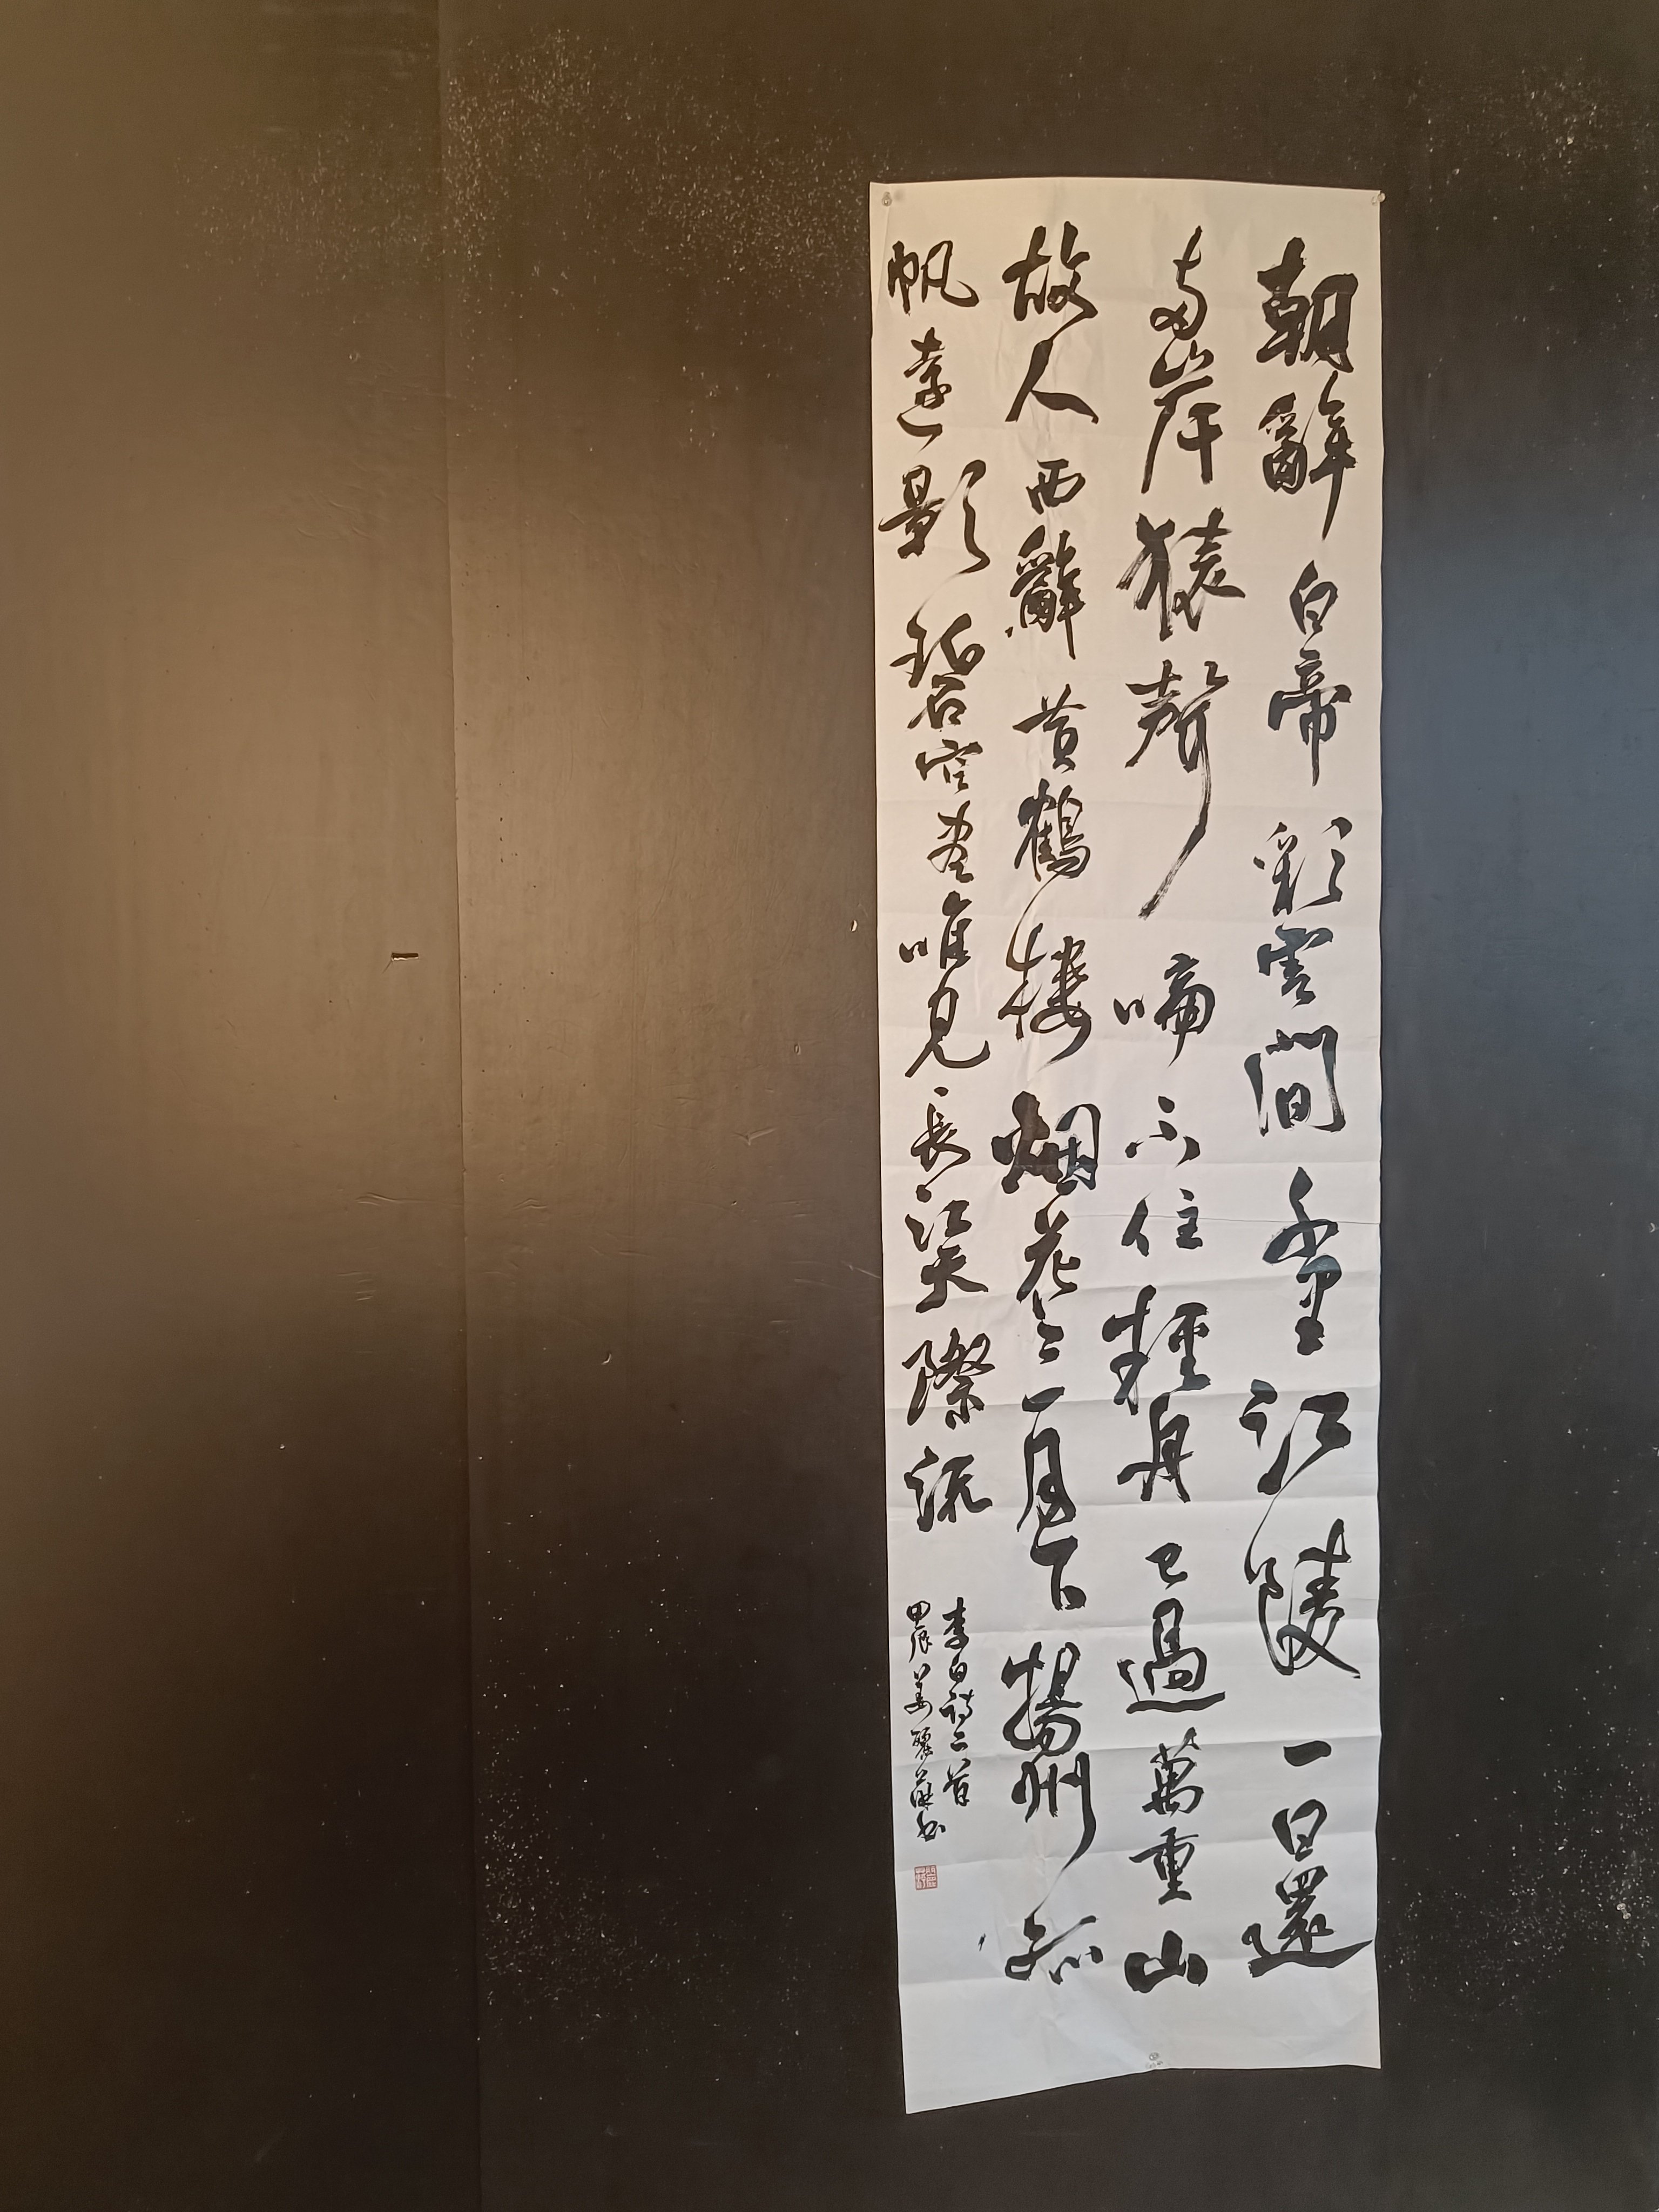 朝辭白帝彩雲間千里江陵一日還
兩岸猿聲啼不住輕舟已過萬重山
故人西辭黃鶴樓烟花三月下揚州孤
帆遠影碧空盡唯見長江天際流
李白詩二首
甲辰姜麗萍書